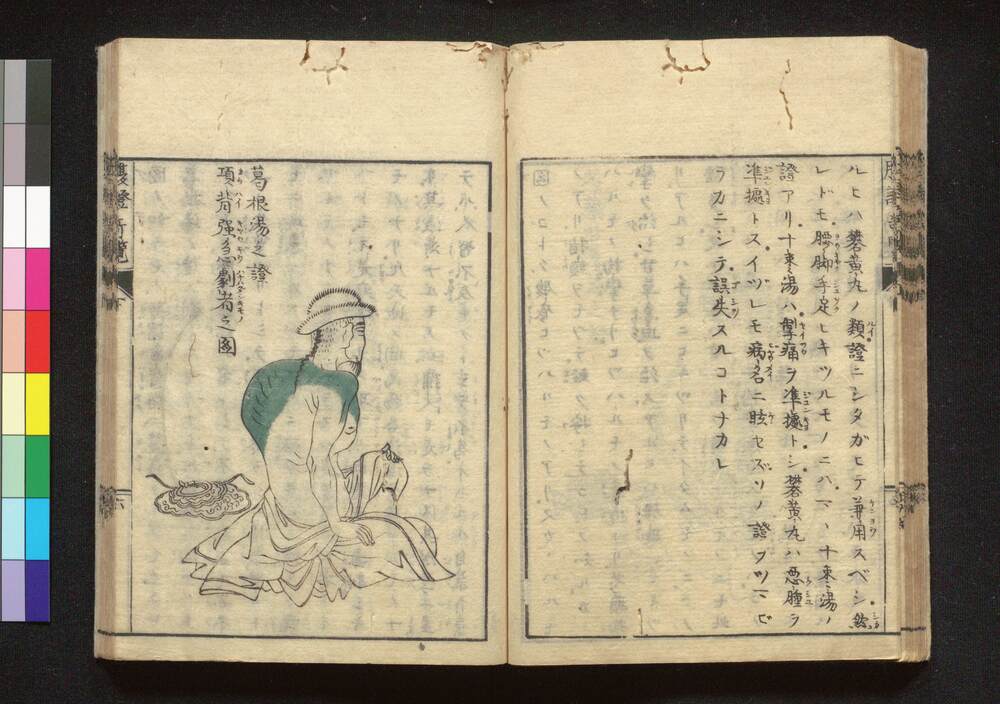 ルヒハ礬黄丸ノ類證ニシタガヒテ兼用スベシ然
レドモ腰脚手足ヒキツルモノニハママ十棗湯ノ
證アリ十棗湯ハ攣痛ヲ準據トシ礬黄丸ハ悪腫ヲ
準據トスイヅレモ病名ニ眩セズソノ證ヲツマビ
ラカニシテ誤失スルコトナカレ
葛根湯之證
項背強急劇者之図
六